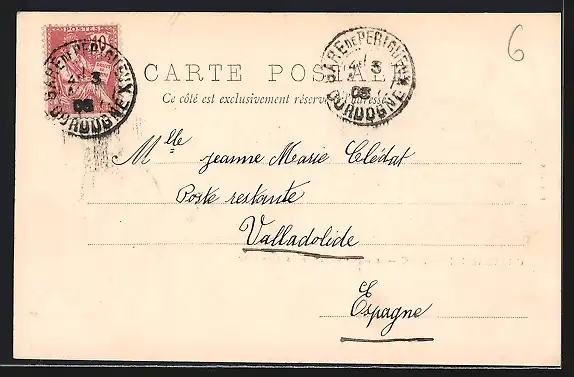 6
POSTES
10
GARE DE PERIGUEUX
3
03
DORDOGNE
GARE DE PERIGUEUX
3
03
DORDOGNE
CARTE POSTALE
Ce côté est exclusivement réservé à l'adresse
Mlle Jeanne Marie Clédat
Poste restante
Valladolide
Espagne